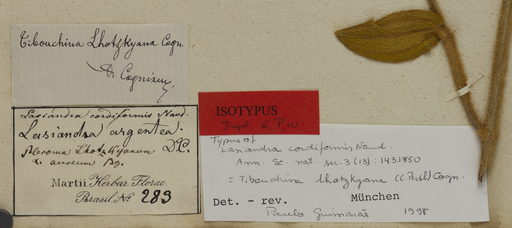 Tibouchina Lhotzkyana Cogn
Dr Cogniaux
Lasiandra cordiformis Naud.
Lasiandra argentea. DC.
Pleroma Lhotzkyanum
aureum
Martii Herbar. Florae
Brasil. No 283
ISOTYPUS
Typus of
Lasiandra cordiformis Naud.
Ann. Sc. nat. ser. 3 (13): 143. 1850
= Tibouchina lhotzkyana (C. Presl) Cogn.
Det. - rev. München
Paulo Guimarães 1998